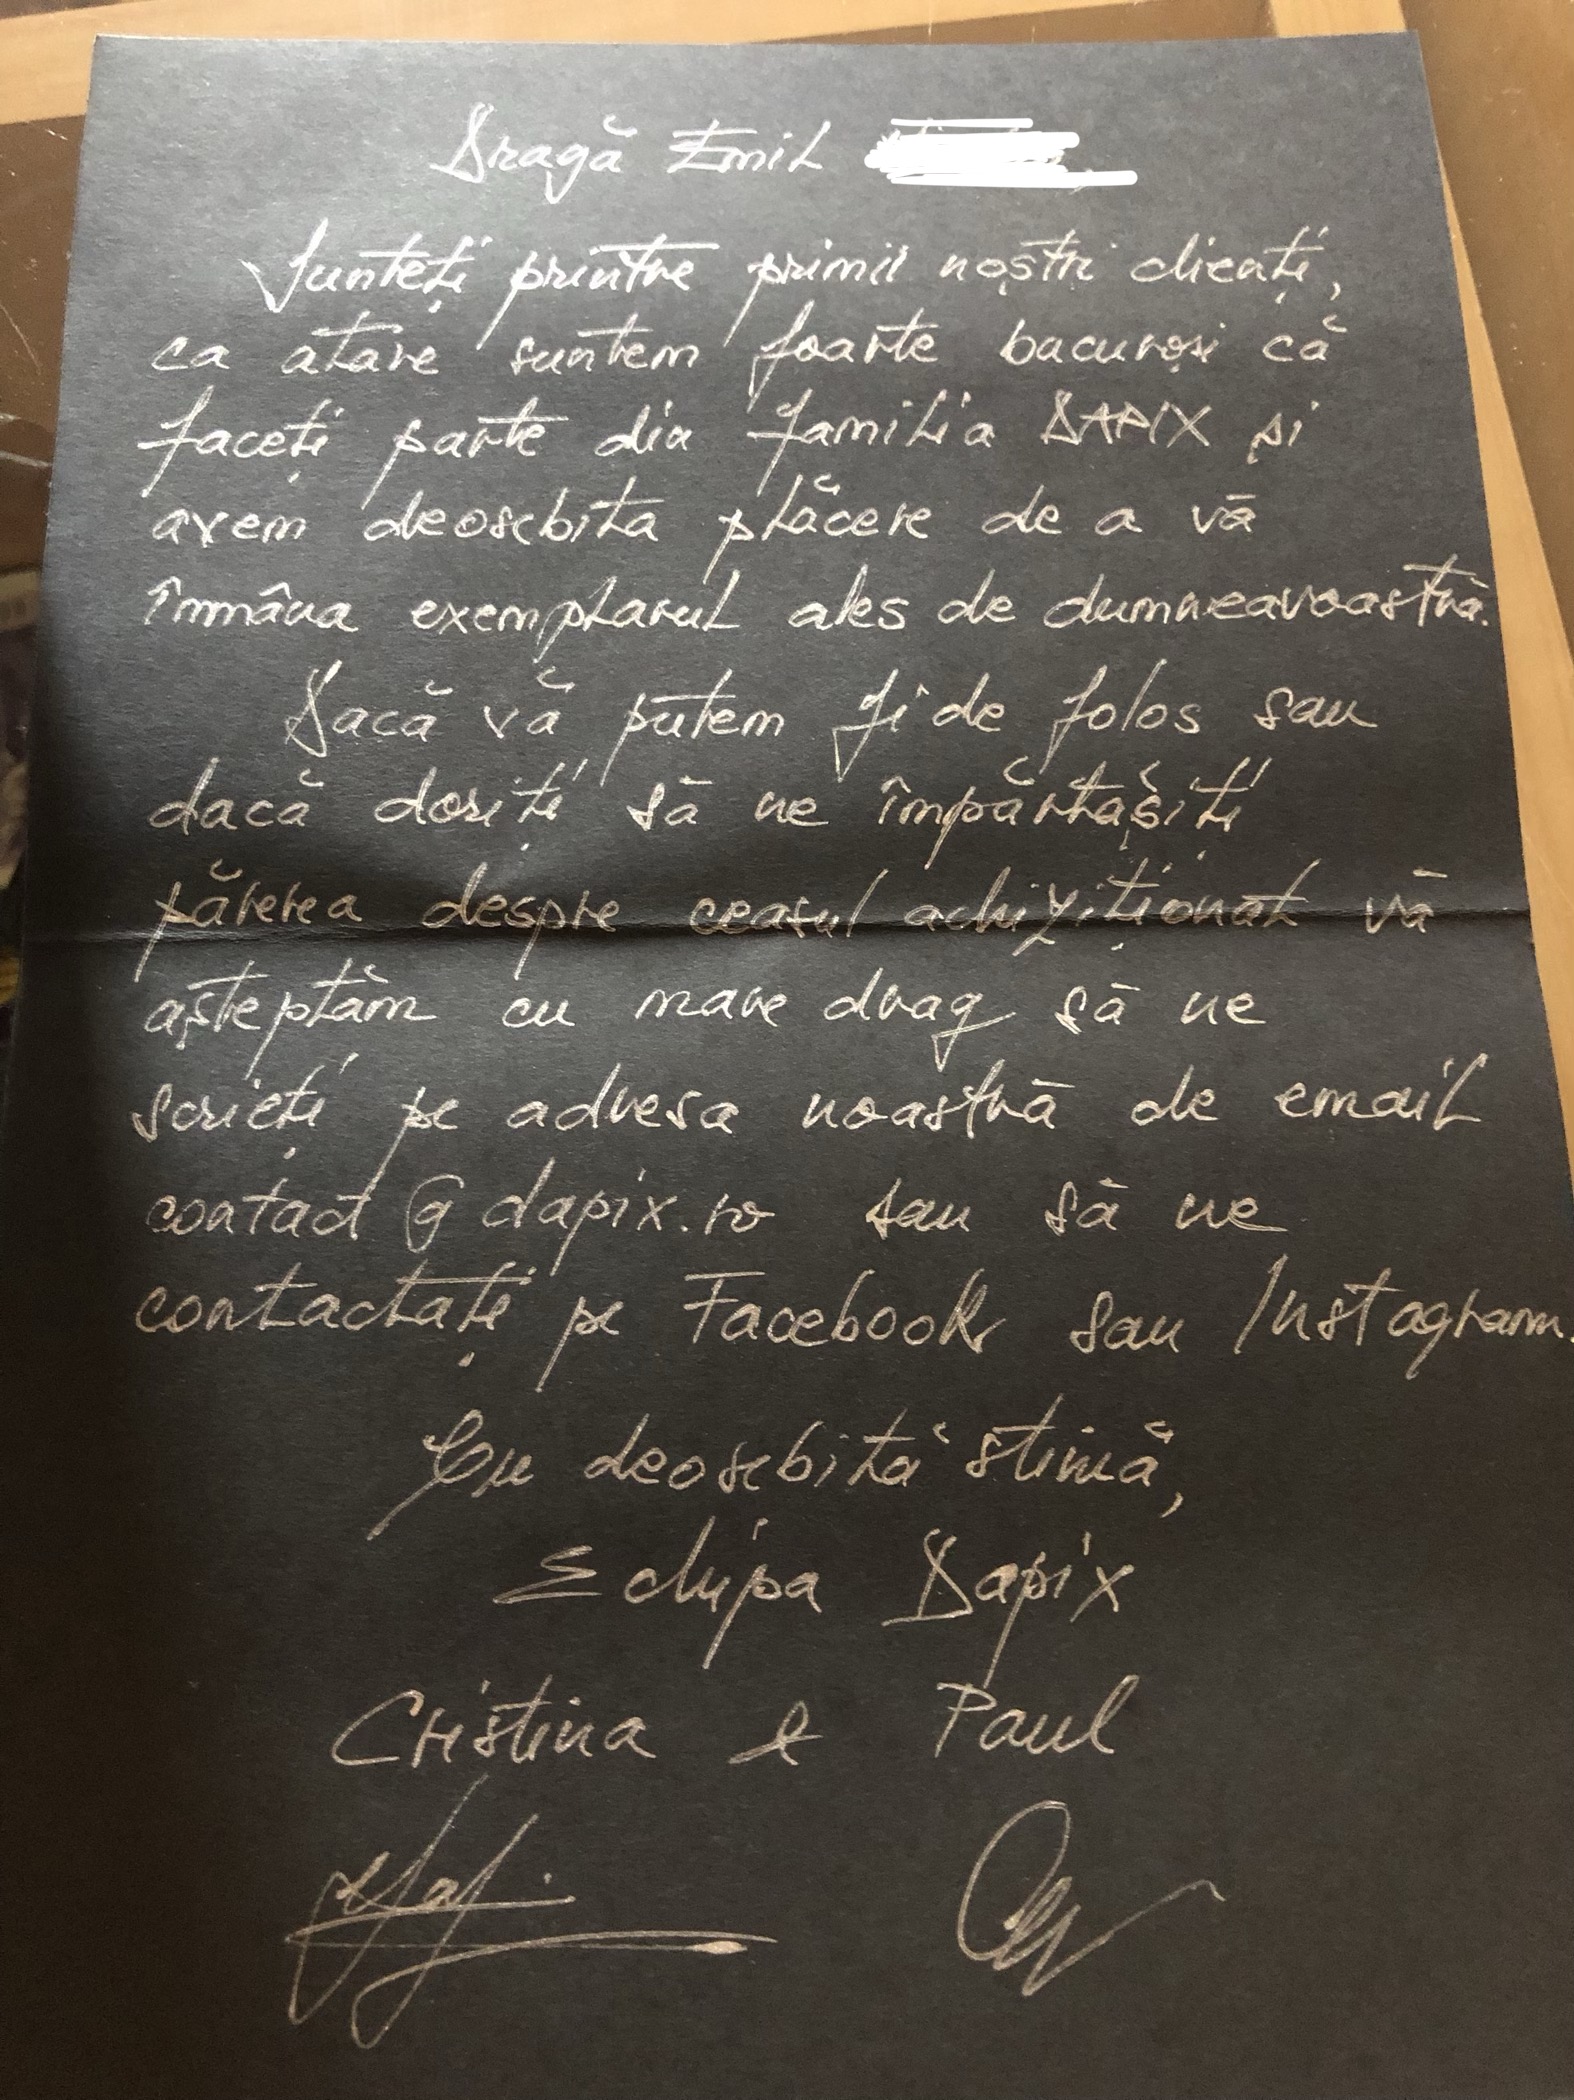 Dragă Emil
Sunteți printre primii noștri clienți,
ca atare suntem foarte bacuroși că
faceți parte din familia DAPIX și
avem deosebita plăcere de a vă
înmâna exemplarul ales de dumneavoastră.
Dacă vă putem fi de folos sau
dacă doriți să ne împărtășiți
părerea despre ceasul achiziționat vă
așteptăm cu mare drag să ne
scrieți pe adresa noastră de email
contact@dapix.ro sau să ne
contactați pe Facebook sau Instagram.
Cu deosebită stimă,
Echipa Dapix
Cristina & Paul